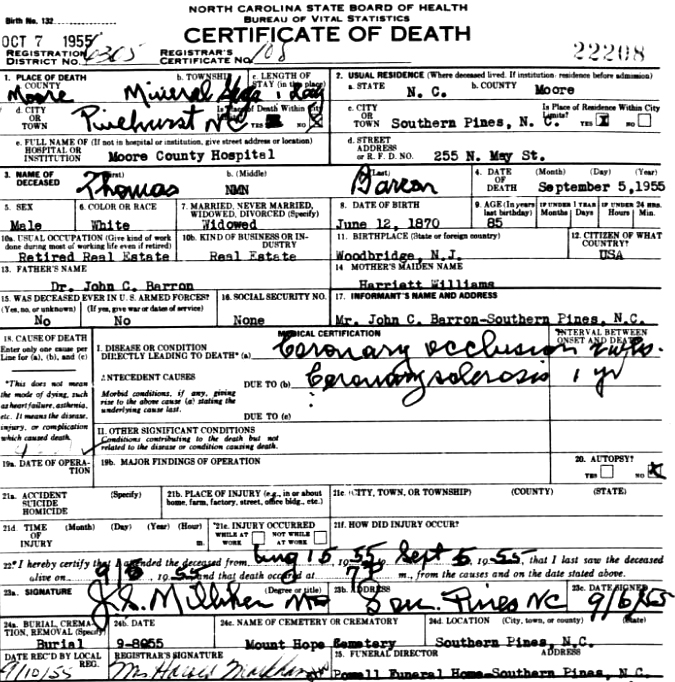 NORTH CAROLINA STATE BOARD OF HEALTH
BUREAU OF VITAL STATISTICS
Birth No. 132
CERTIFICATE OF DEATH
OCT 7 1955
REGISTRATION DISTRICT NO. 6365
REGISTRAR'S CERTIFICATE NO. 108
22208
1. PLACE OF DEATH
COUNTY Moore
b. TOWNSHIP Mineral Spgs
c. LENGTH OF STAY (in this place) 1 Day
2. USUAL RESIDENCE (Where deceased lived. If institution: residence before admission)
a. STATE N. C.
b. COUNTY Moore
d. CITY OR TOWN Pinehurst NC
Is Place of Death Within City Limits? YES NO
c. CITY OR TOWN Southern Pines, N. C.
Is Place of Residence Within City Limits? YES X NO
e. FULL NAME OF (If not in hospital or institution, give street address or location) HOSPITAL OR INSTITUTION Moore County Hospital
d. STREET ADDRESS or R. F. D. NO. 255 N. May St.
3. NAME OF DECEASED
(First) Thomas
b. (Middle) NMN
(Last) Barron
4. DATE OF DEATH (Month) (Day) (Year) September 5,1955
5. SEX Male
6. COLOR OR RACE White
7. MARRIED, NEVER MARRIED, WIDOWED, DIVORCED (Specify) Widowed
8. DATE OF BIRTH June 12, 1870
9. AGE (In years last birthday) 85
IF UNDER 1 YEAR Months Days
IF UNDER 24 HRS. Hours Min.
10a. USUAL OCCUPATION (Give kind of work done during most of working life even if retired) Retired Real Estate
10b. KIND OF BUSINESS OR INDUSTRY Real Estate
11. BIRTHPLACE (State or foreign country) Woodbridge, N.J.
12. CITIZEN OF WHAT COUNTRY? USA
13. FATHER'S NAME Dr. John C. Barron
14 MOTHER'S MAIDEN NAME Harriett Williams
15. WAS DECEASED EVER IN U. S. ARMED FORCES?
(Yes, no, or unknown) No
(If yes, give war or dates of service) No
16. SOCIAL SECURITY NO. None
17. INFORMANT'S NAME AND ADDRESS
Mr. John C. Barron-Southern Pines, N.C.
18. CAUSE OF DEATH
Enter only one cause per Line for (a), (b), and (c)
MEDICAL CERTIFICATION
INTERVAL BETWEEN ONSET AND DEATH
I. DISEASE OR CONDITION DIRECTLY LEADING TO DEATH* (a) Coronary occlusion 2 wks.
ANTECEDENT CAUSES
DUE TO (b) Coronary sclerosis 1 yr
*This does not mean the mode of dying, such as heart failure, asthenia, etc. It means the disease, injury, or complication which caused death.
Morbid conditions, if any, giving rise to the above cause (a) stating the underlying cause last.
DUE TO (c)
II. OTHER SIGNIFICANT CONDITIONS
Conditions contributing to the death but not related to the disease or condition causing death.
19a. DATE OF OPERATION
19b. MAJOR FINDINGS OF OPERATION
20. AUTOPSY?
YES NO
21a. ACCIDENT SUICIDE HOMICIDE (Specify)
21b. PLACE OF INJURY (e.g., in or about home, farm, factory, street, office bldg., etc.)
21c. (CITY, TOWN, OR TOWNSHIP) (COUNTY) (STATE)
21d TIME OF INJURY (Month) (Day) (Year) (Hour) m.
21e. INJURY OCCURRED WHILE AT WORK NOT WHILE AT WORK
21f. HOW DID INJURY OCCUR?
22. I hereby certify that I attended the deceased from Aug 15, 1955 to Sept 5, 1955, that I last saw the deceased
alive on 9/5, 1955 and that death occurred at m., from the causes and on the date stated above.
23a. SIGNATURE (Degree or title) J.S. Milliken MD
23b. ADDRESS Sou. Pines NC
23c. DATE SIGNED 9/6/55
24a. BURIAL, CREMATION, REMOVAL (Specify) Burial
24b. DATE
24c. NAME OF CEMETERY OR CREMATORY Mount Hope Cemetery
24d. LOCATION (City, town, or county) (State) Southern Pines, N.C.
DATE REC'D BY LOCAL REG. 9/10/55
REGISTRAR'S SIGNATURE
25. FUNERAL DIRECTOR ADDRESS
Powell Funeral Home-Southern Pines, N.C.